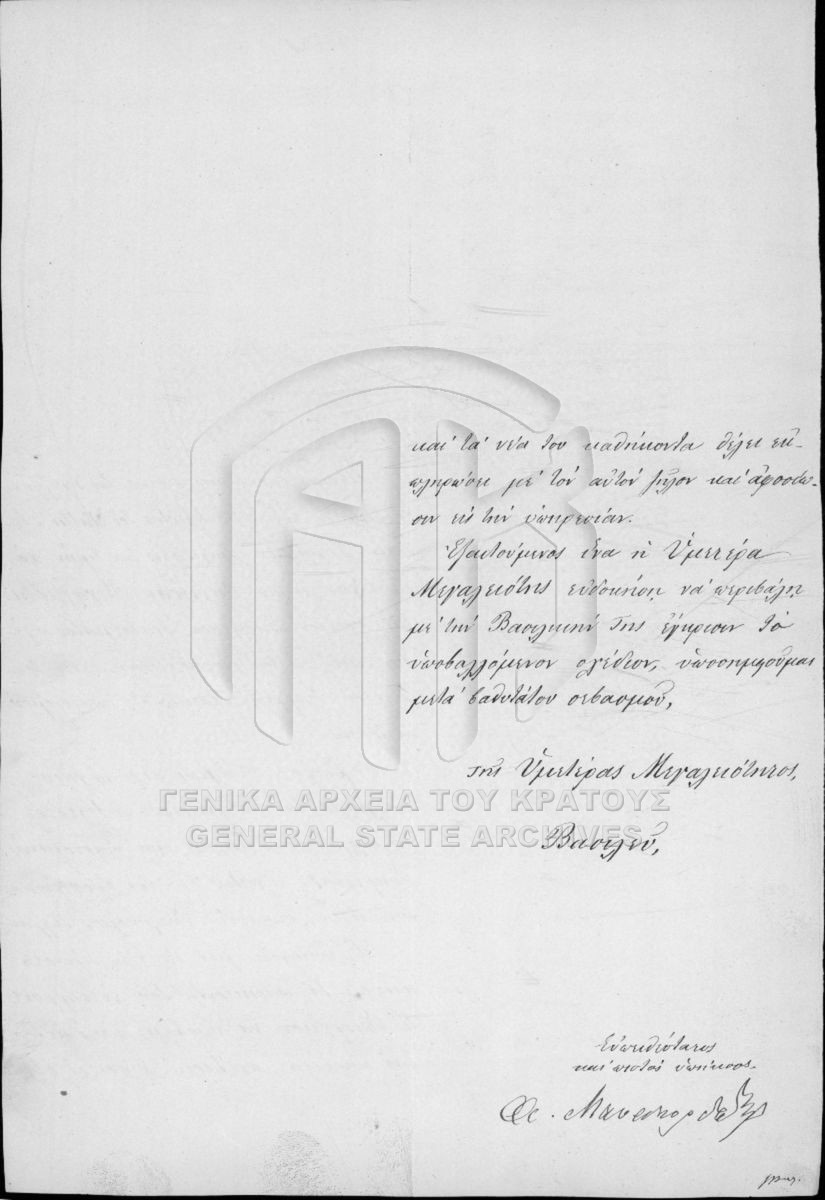 καὶ τὰ νέα του καθήκοντα θέλει ἐκ-
πληρώσει μὲ τὸν αὐτὸν ζῆλον καὶ ἀφοσίω-
σιν εἰς τὴν ὑπηρεσίαν.
Ἐξαιτούμενος ἵνα ἡ Ὑμετέρα
Μεγαλειότης εὐδοκήσῃ νὰ περιβάλῃ
μὲ τὴν Βασιλικήν Της ἔγκρισιν τὸ
ὑποβαλλόμενον σχέδιον, ὑποσημειοῦμαι
μετὰ βαθυτάτου σεβασμοῦ,
τῆς Ὑμετέρας Μεγαλειότητος,
ΓΕΝΙΚΑ ΑΡΧΕΙΑ ΤΟΥ ΚΡΑΤΟΥΣ
GENERAL STATE ARCHIVES
Βασιλεῦ,
Εὐπειθέστατος
καὶ πιστὸς ὑπήκοος.